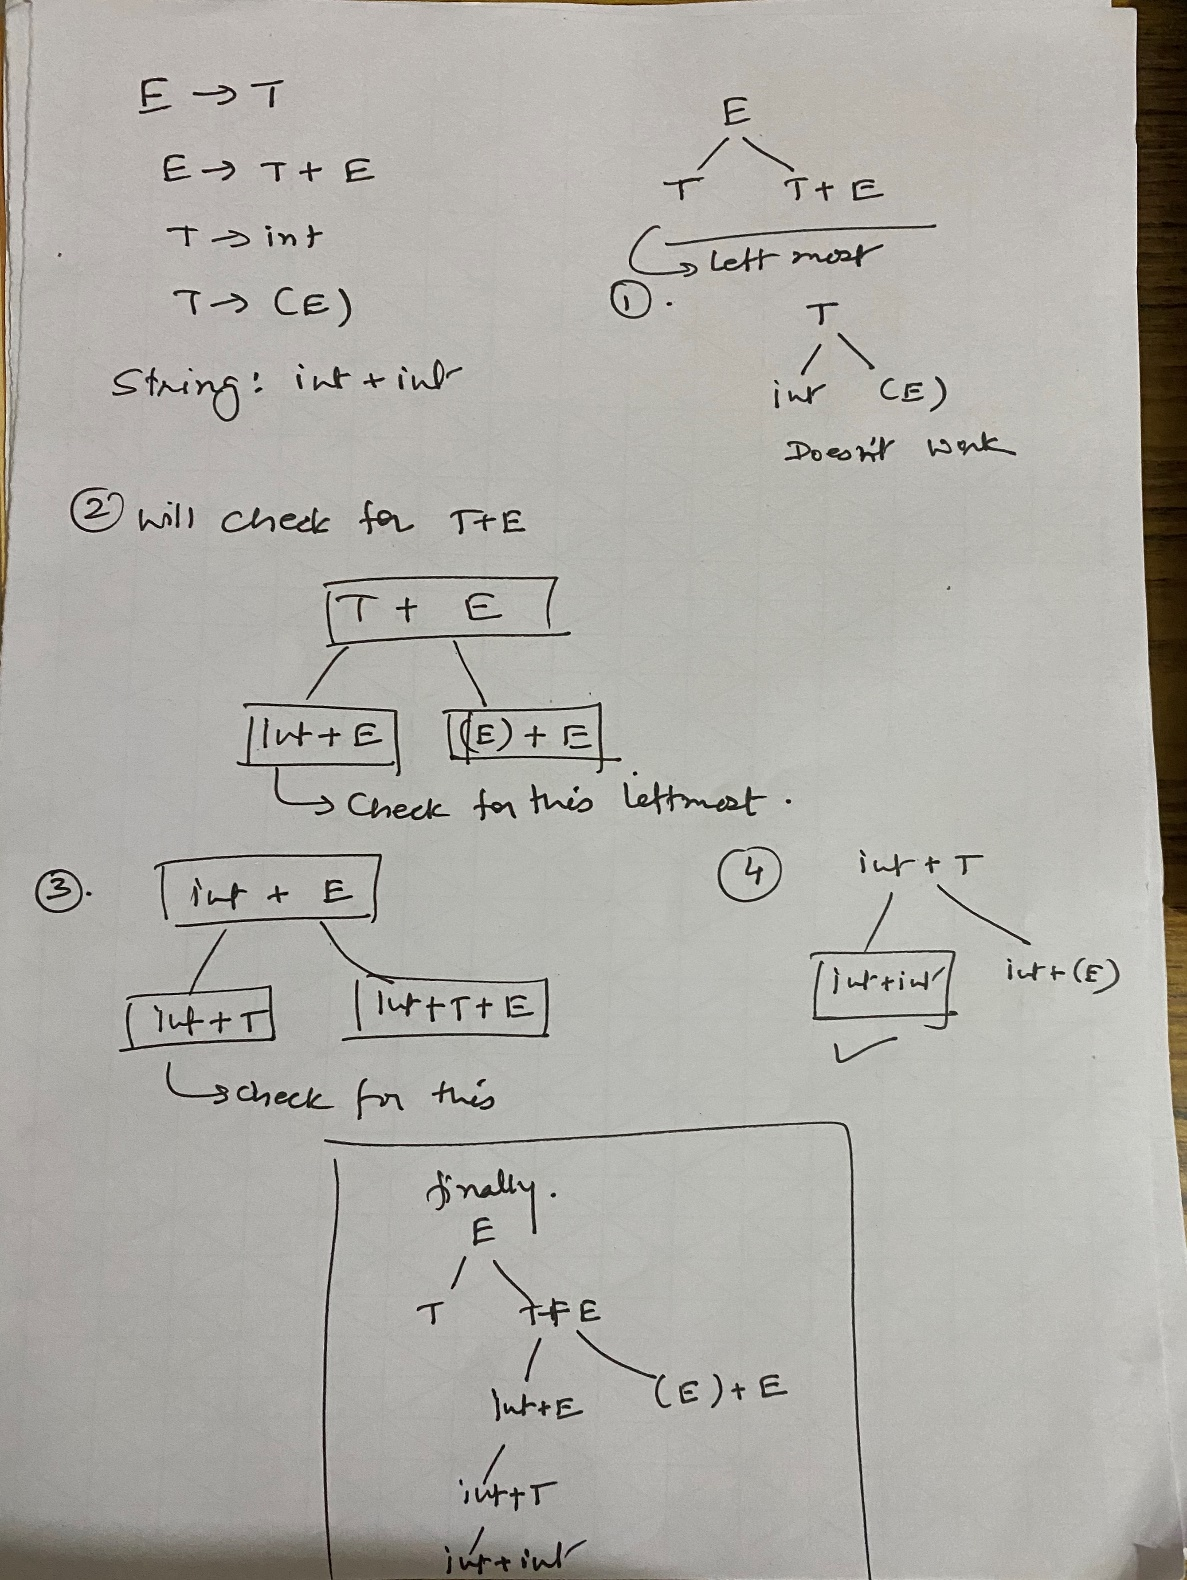 E → T
E → T + E
T → int
T → (E)
String: int + int
E
T T + E
↳ Left most
① .
T
int (E)
Doesn't work
② will check for T+E
T + E
Int + E (E) + E
↳ Check for this leftmost .
③.
int + E
int + T Int + T + E
↳ check for this
④
int + T
int + int int + (E)
✓
finally.
E
T T + E
Int + E (E) + E
int + T
int + int